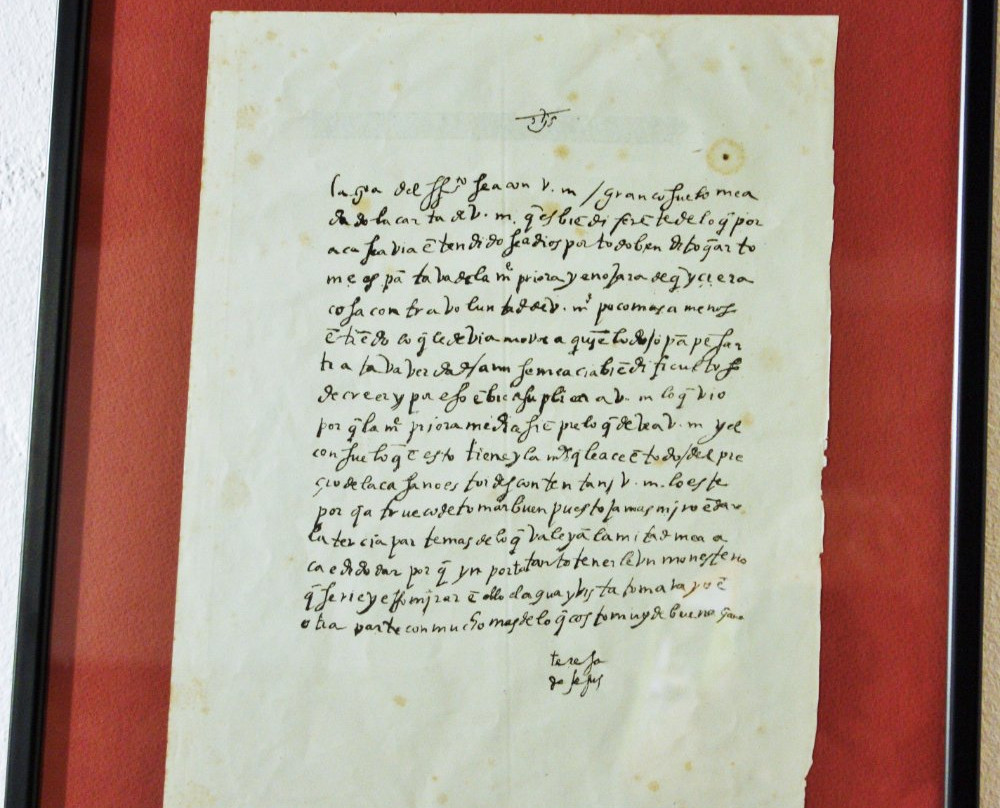 jhs
la gra del spu sto sea con v. m / gran cosuelo mea
dado la carta de v. m. q̄ es biē di ferēte de lo q̄ por
aca seavia ētendido sea dios por todo bendito q̄ arto
me espātava de la me priora y enojara de q̄ yciera
cosa contra voluntad de v. m poco mas a menos
ētiēdo lo q̄ le devia mover a quiē lo dijo pā pēsar
tratava verdad / aun se mea cia biē dificultoso
de creer y por eso ēbie a suplicar a v. m lo q̄ vio
por q̄ la me priora me diǰ siēpre lo q̄ deve a v. m y el
consuelo q̄ ē esto tiene y la md q̄ le ace ē todo / del pre
çio de la casa no es tor descontenta ni v. m. lo este
por q̄ a trueco de tomar buen puesto jamas miro ē dar
la tercia parte mas de lo q̄ vale y ā la mitad mea a
caedido dar por q̄ yn porta tanto tenerle vn monesterio
q̄ serie yerro mirar ē ello el agua y vista tomara yo ē
otra parte con mucho mas de lo q̄ costo muy de buena gana
teresa
de jesus